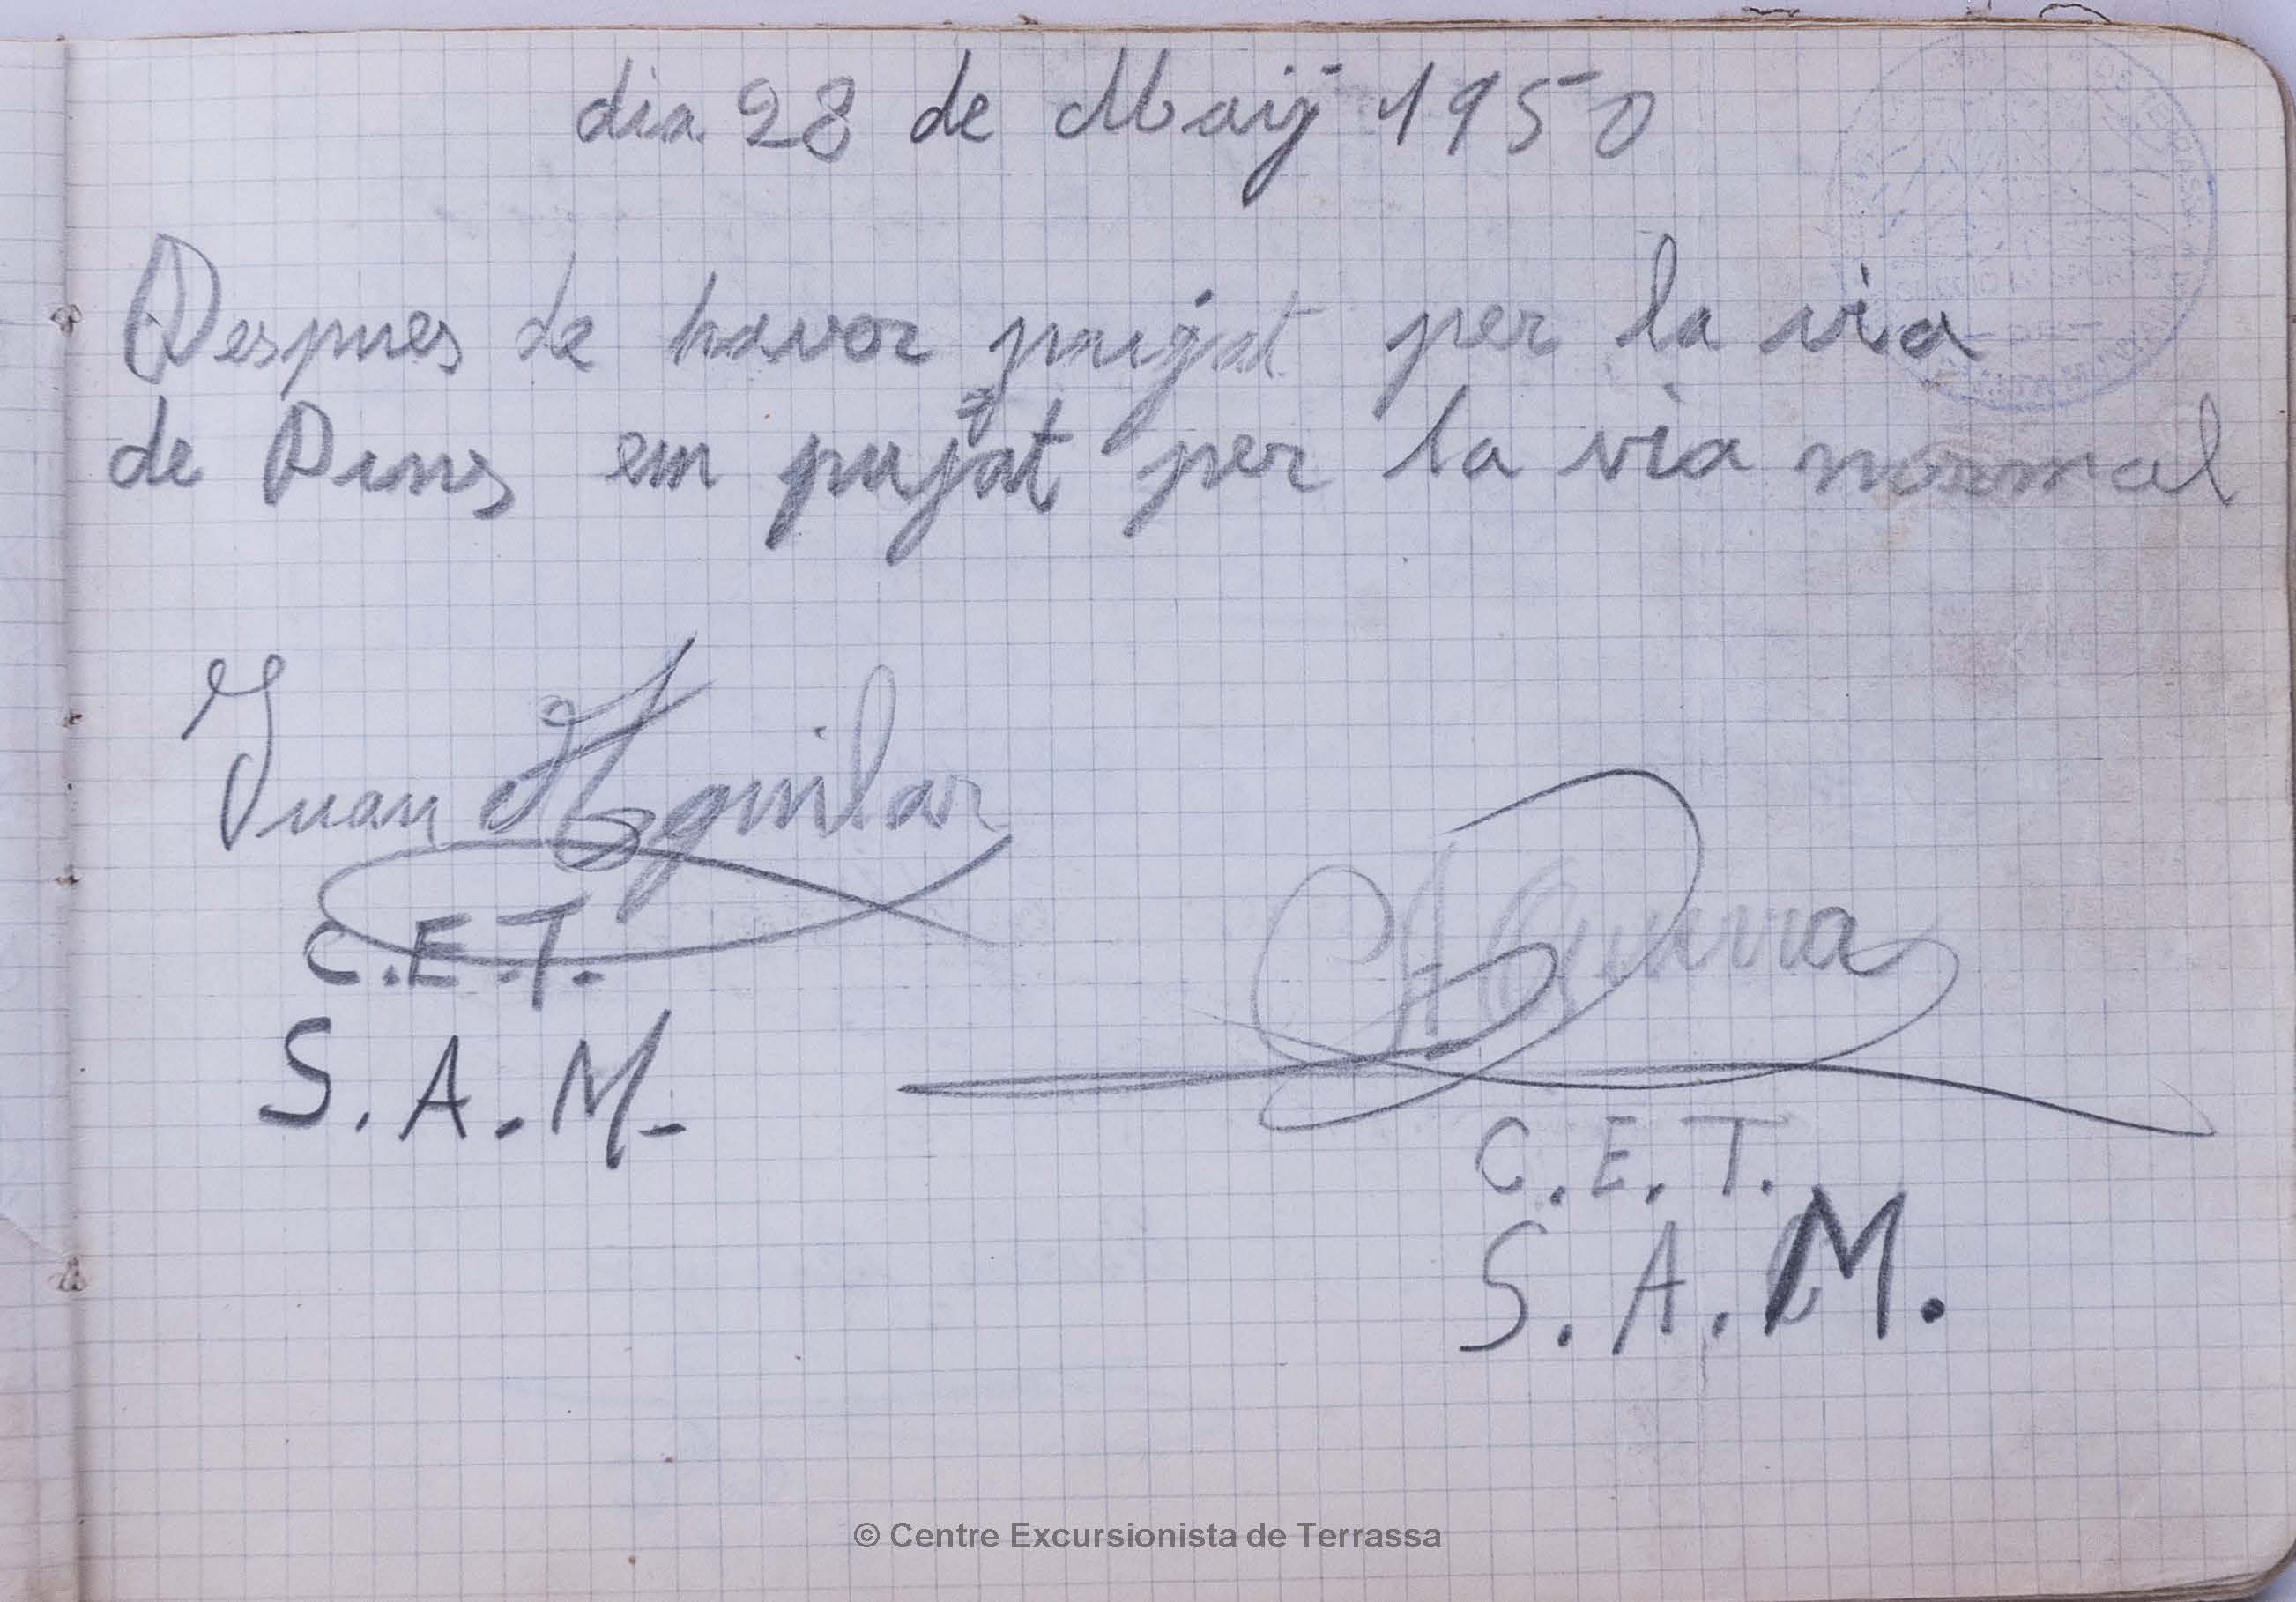 dia 28 de Maij 1950
Despues de havor puigat per la via
de Pins em pujat per la via normal
Juan Aguilar
C.E.T.
S.A.M.
Guerra
C.E.T.
S.A.M.
© Centre Excursionista de Terrassa